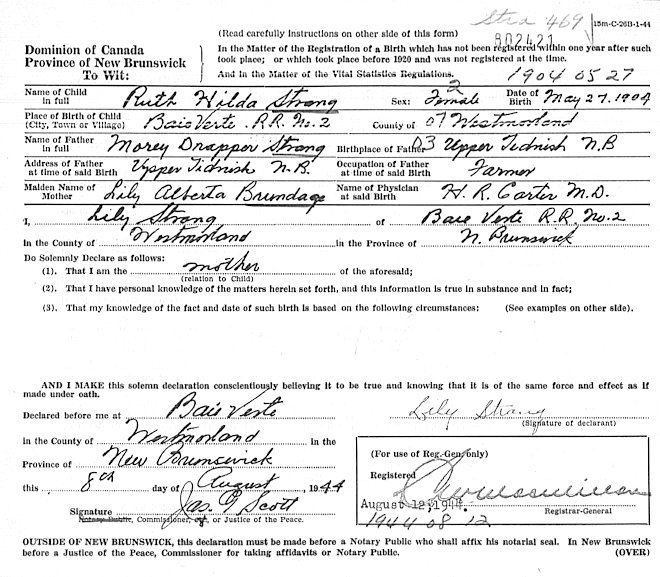 Stra 469
15m-C-26B-1-44
(Read carefully instructions on other side of this form)
802421
Dominion of Canada
Province of New Brunswick
To Wit:
In the Matter of the Registration of a Birth which has not been registered within one year after such
took place; or which took place before 1920 and was not registered at the time.
And in the Matter of the Vital Statistics Regulations.
1904 05 27
Name of Child in full Ruth Hilda Strang Sex: Female 2 Date of Birth May 27, 1904
Place of Birth of Child (City, Town or Village) Baie Verte R.R. No. 2 County of 07 Westmorland
Name of Father in full Morey Drapper Strang Birthplace of Father 03 Upper Tidnish N.B
Address of Father at time of said Birth Upper Tidnish N.B. Occupation of Father at time of said Birth Farmer
Maiden Name of Mother Lily Alberta Brundage Name of Physician at said Birth H. R. Carter M.D.
I, Lily Strang of Baie Verte R.R. No. 2
in the County of Westmorland in the Province of N. Brunswick
Do Solemnly Declare as follows:
(1). That I am the mother of the aforesaid;
(relation to Child)
(2). That I have personal knowledge of the matters herein set forth, and this information is true in substance and in fact;
(3). That my knowledge of the fact and date of such birth is based on the following circumstances: (See examples on other side).
AND I MAKE this solemn declaration conscientiously believing it to be true and knowing that it is of the same force and effect as if
made under oath.
Declared before me at Baie Verte
Lily Strang
(Signature of declarant)
in the County of Westmorland in the
Province of New Brunswick
this 8th day of August 1944
Signature Jas. G Scott
Notary Public, Commissioner, or, or Justice of the Peace.
(For use of Reg.-Gen. only)
Registered
August 12, 1944
Registrar-General
1944 08 12
OUTSIDE OF NEW BRUNSWICK, this declaration must be made before a Notary Public who shall affix his notarial seal. In New Brunswick
before a Justice of the Peace, Commissioner for taking affidavits or Notary Public. (OVER)